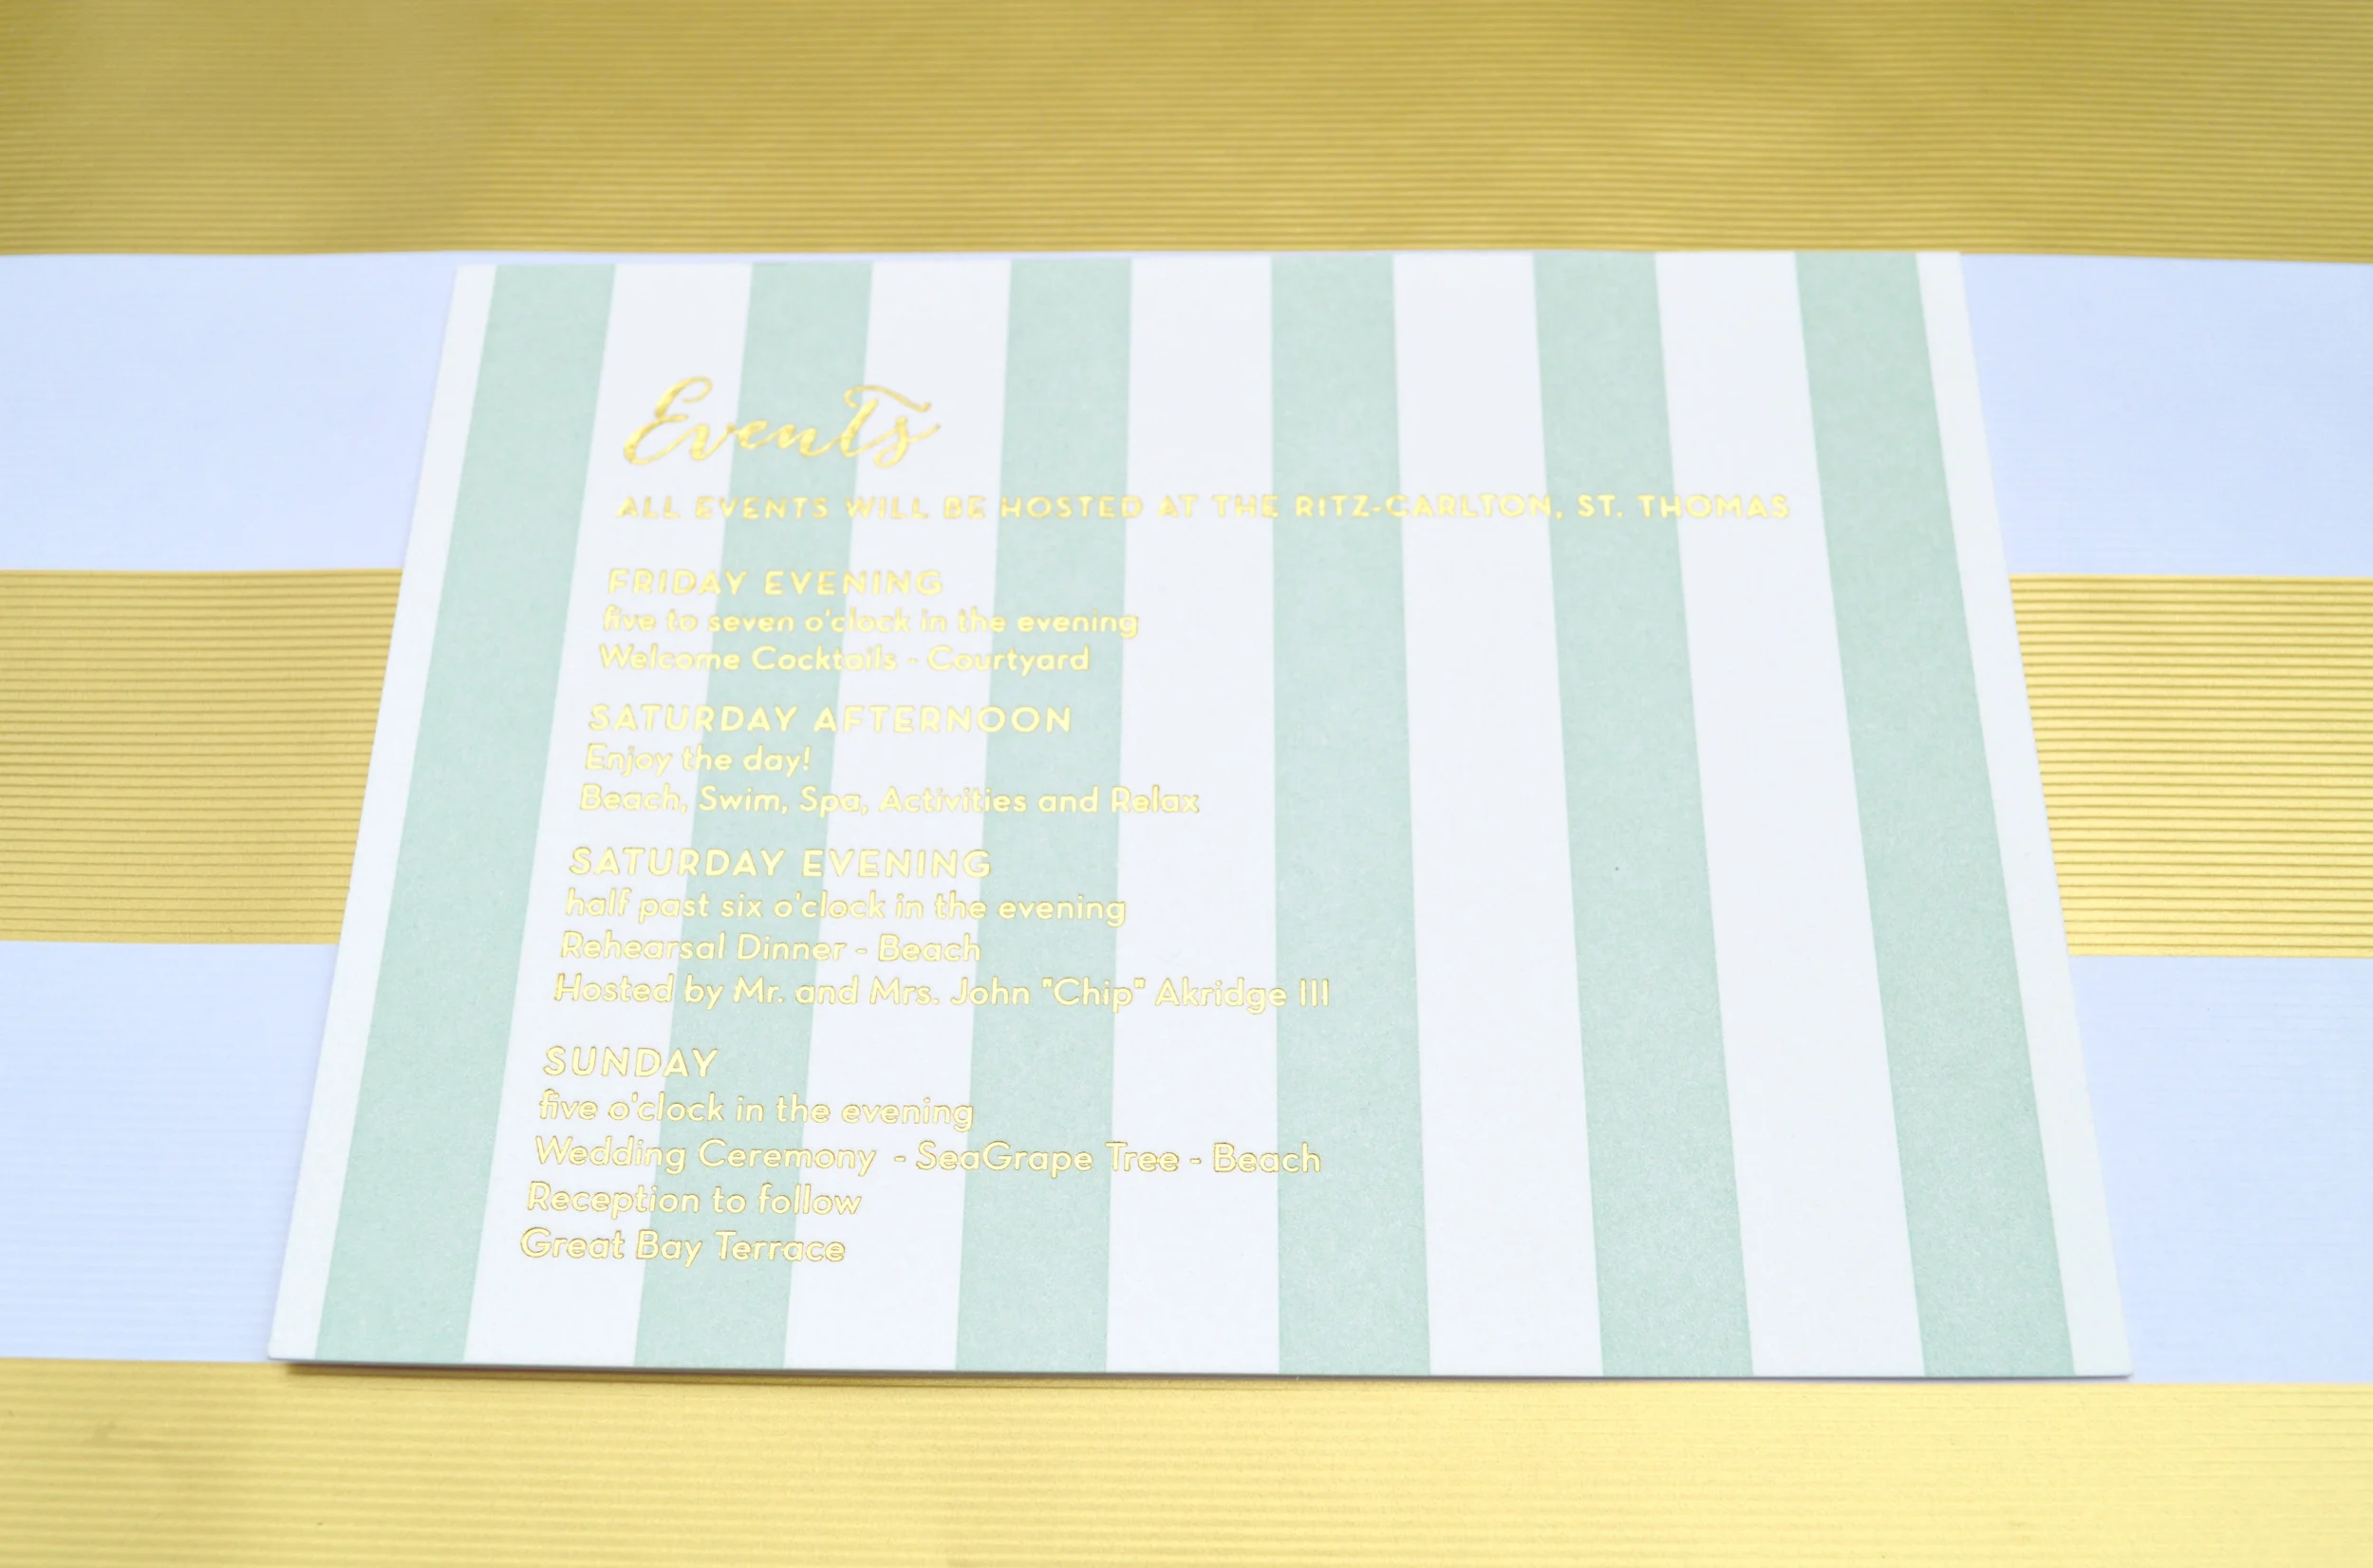 Events
ALL EVENTS WILL BE HOSTED AT THE RITZ-CARLTON, ST. THOMAS
FRIDAY EVENING
five to seven o'clock in the evening
Welcome Cocktails - Courtyard
SATURDAY AFTERNOON
Enjoy the day!
Beach, Swim, Spa, Activities and Relax
SATURDAY EVENING
half past six o'clock in the evening
Rehearsal Dinner - Beach
Hosted by Mr. and Mrs. John "Chip" Akridge III
SUNDAY
five o'clock in the evening
Wedding Ceremony - SeaGrape Tree - Beach
Reception to follow
Great Bay Terrace